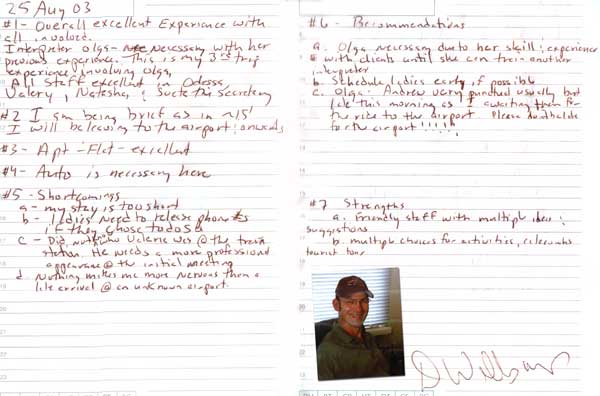 25 Aug 03
#1 - Overall excellent Experience with
all involved.
Interpreter Olga - necessary with her
previous experience. This is my 3rd trip
experience involving Olga,
All Staff excellent in Odessa
Valery, Natasha, & Sveta the Secretary
#2 I am being brief as in ~15'
I will be leaving to the airport & onwards
#3 - Apt - Flat - excellent
#4 - Auto is necessary here
#5 - Shortcomings
a - my stay is too short
b - ladies need to release phone #s
if they chose to do so
c - Did not know Valerie was @ the train
station. He needs a more professional
appearance @ the initial meeting
d. Nothing makes me more nervous than a
late arrival @ an unknown airport.
#6 - Recommendations
a. Olga necessary due to her skill & experience
with clients until she can train another
interpreter
b. Schedule ladies early, if possible
c. Olga & Andrew very punctual usually but
late this morning as I awaiting them for
the ride to the airport Please do not be late
for the airport !!!!!
#7 Strengths
a. Friendly staff with multiple ideas &
suggestions
b. multiple choices for activities, restaurants
tourist tour